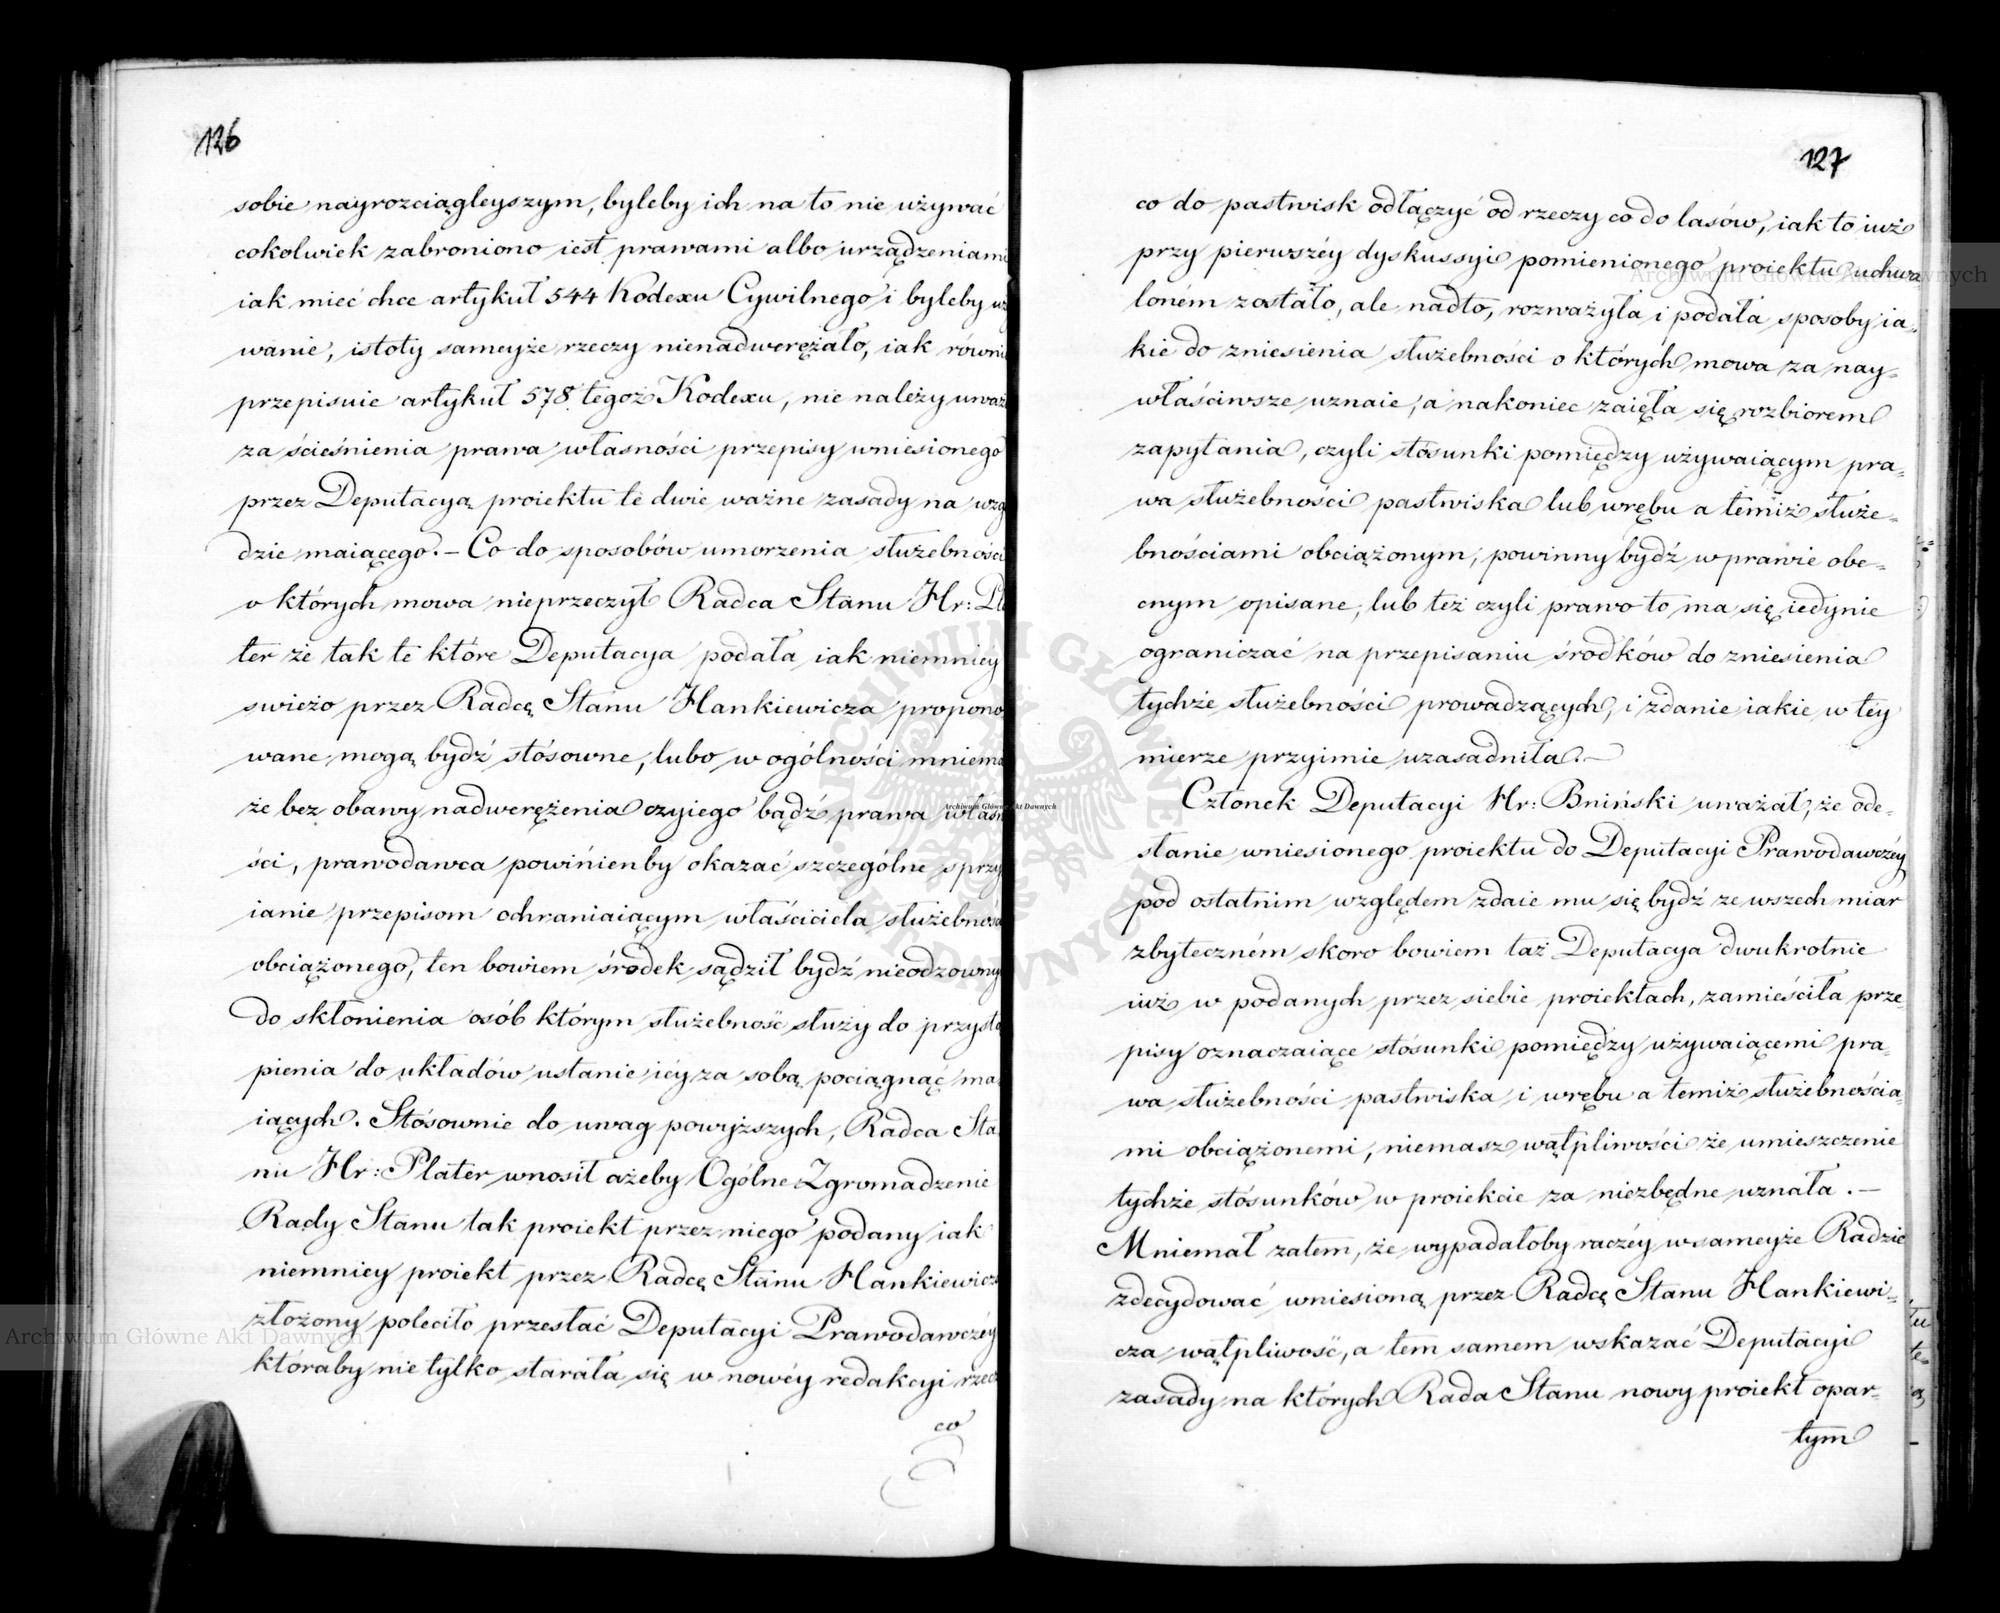 126
sobie nayrozciągleyszym, byleby ich na to nie używać
cokolwiek zabroniono iest prawami albo urządzeniami
iak mieć chce artykuł 544 Kodexu Cywilnego i byleby uż
wanie, istoty sameyże rzeczy nienadwerężało, iak równi
przepisuie artykuł 578 tegoż Kodexu, nie należy uważ
za ścieśnienia prawa własności przepisy wniesionego
przez Deputacyą proiektu te dwie ważne zasady na wzg
dzie maiącego. – Co do sposobów umorzenia służebności
o których mowa nieprzeczył Radca Stanu Hr: Pla
ter że tak te które Deputacya podała iak niemniey
swieżo przez Radcę Stanu Hankiewicza propono
wane mogą bydź stósowne, lubo w ogólności mniema
że bez obawy nadwerężenia czyiego bądź prawa własn
ści, prawodawca powinienby okazać szczególne sprzy
ianie przepisom ochraniaiącym właściciela służebności
obciążonego, ten bowiem środek sądził bydź nieodzowny
do skłonienia osób którym służebność służy do przystą
pienia do układów ustanie iéy za sobą pociągnąć ma
iących. Stósownie do uwag powyższych, Radca Sta
nu Hr: Plater wnosił ażeby Ogólne Zgromadzenie
Rady Stanu tak proiekt przez niego podany iak
niemniey proiekt przez Radcę Stanu Hankiewicza
złożony poleciło przesłać Deputacyi Prawodawczéy
któraby nie tylko starała się w nowéy redakcyi rzecz
co
127
co do pastwisk odłączyć od rzeczy co do lasów, iak to iuż
przy pierwszéy dyskussyi pomienionego proiektu uchwa
loném zostało, ale nadto, rozważyła i podała sposoby ia-
kie do zniesienia służebności o których mowa za nay-
właściwsze uznaie, a nakoniec zaięła się rozbiorem
zapytania, czyli stósunki pomiędzy używaiącym pra-
wa służebności pastwiska lub wrębu a temiż służe-
bnościami obciążonym, powinny bydź w prawie obe-
cnym opisane, lub też czyli prawo to ma się iedynie
ograniczać na przepisaniu środków do zniesienia
tychże służebności prowadzących, i zdanie iakie w téy
mierze przyimie uzasadniła. –
Członek Deputacyi Hr: Bniński uważał, że ode-
słanie wniesionego proiektu do Deputacyi Prawodawczéy
pod ostatnim względem zdaie mu się bydź ze wszech miar
zbyteczném skoro bowiem taż Deputacya dwukrotnie
iuż w podanych przez siebie proiektach, zamieściła prze-
pisy oznaczaiące stósunki pomiędzy używaiącemi pra-
wa służebności pastwiska i wrębu a temiż służebnościa-
mi obciążonemi, niemasz wątpliwości że umieszczenie
tychże stósunków w proiekcie za niezbędne uznała. –
Mniemał zatem, że wypadałoby raczéy w sameyże Radzie
zdecydować wniesioną przez Radcę Stanu Hankiewi-
cza wątpliwość, a tem samem wskazać Deputacyi
zasady na których Rada Stanu nowy proiekt opar-
tym
Archiwum Główne Akt Dawnych